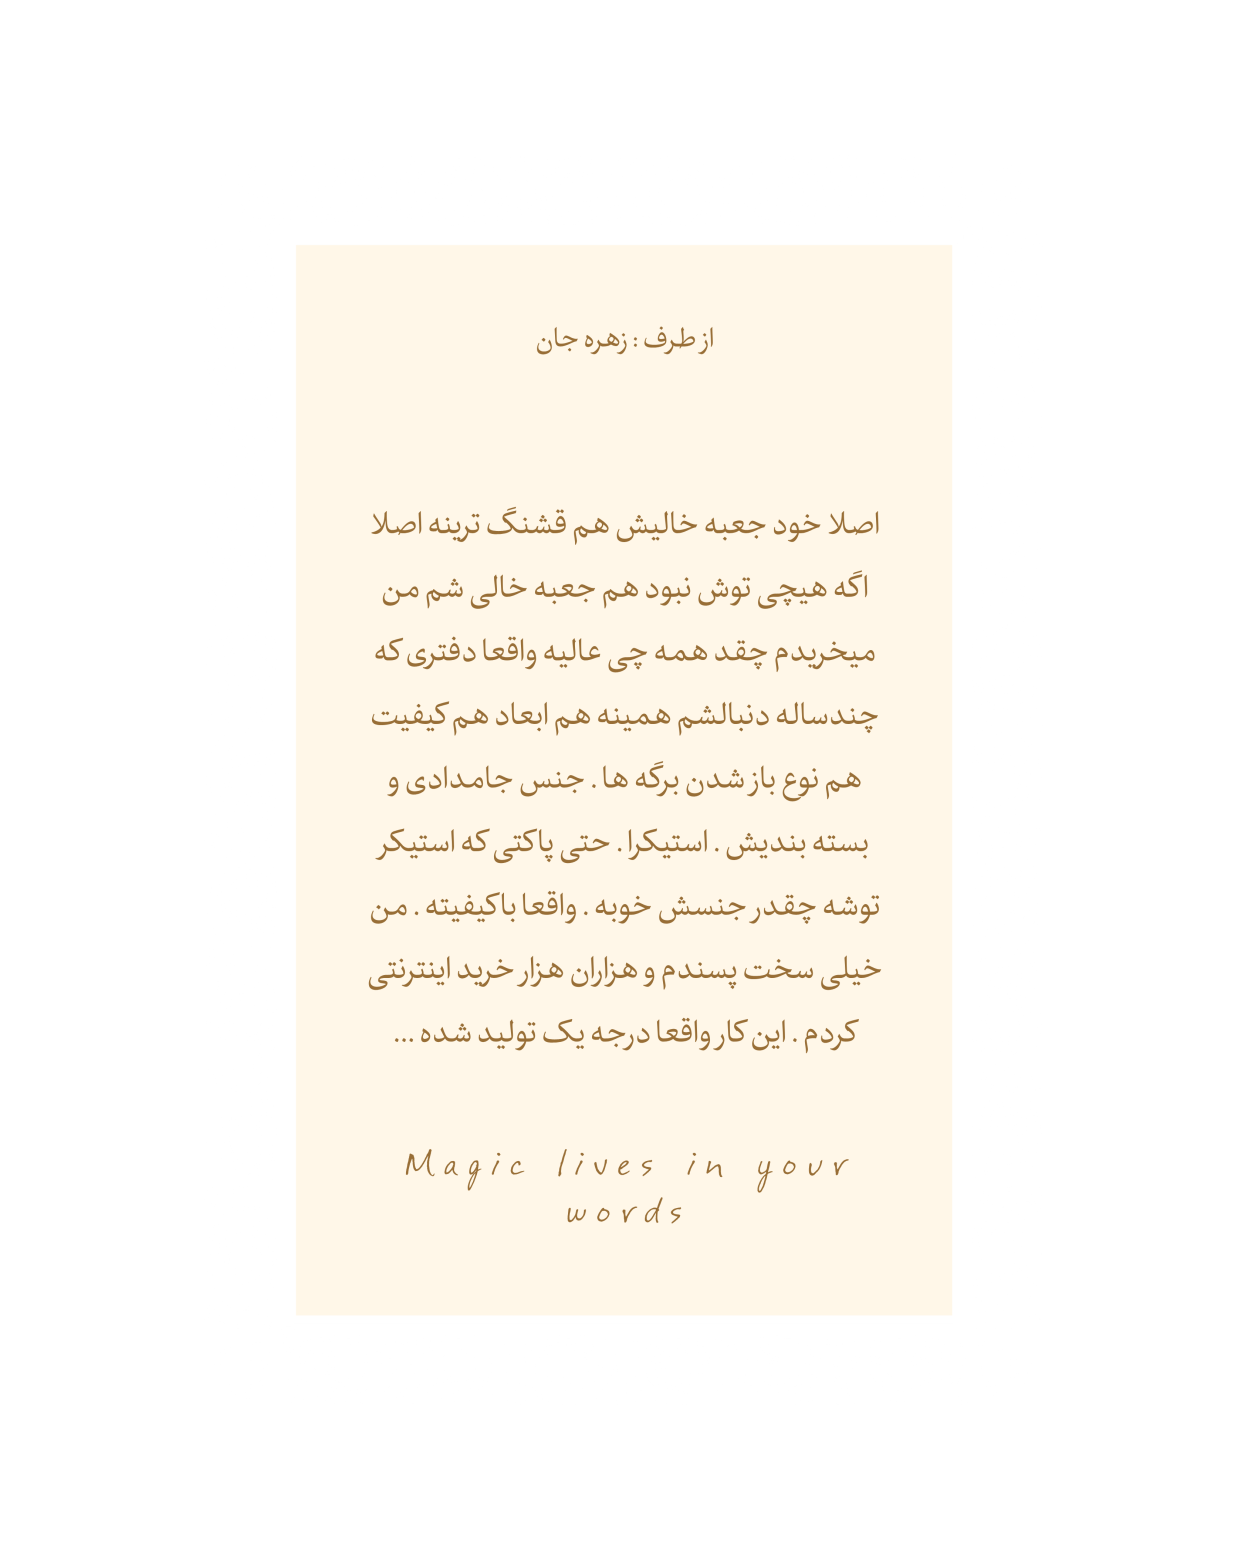 از طرف : زهره جان
اصلا خود جعبه خالیش هم قشنگ ترینه اصلا
اگه هیچی توش نبود هم جعبه خالی شم من
میخریدم چقد همه چی عالیه واقعا دفتری که
چندساله دنبالشم همینه هم ابعاد هم کیفیت
هم نوع باز شدن برگه ها . جنس جامدادی و
بسته بندیش . استیکرا . حتی پاکتی که استیکر
توشه چقدر جنسش خوبه . واقعا باکیفیته . من
خیلی سخت پسندم و هزاران هزار خرید اینترنتی
کردم . این کار واقعا درجه یک تولید شده ...
Magic lives in your
words